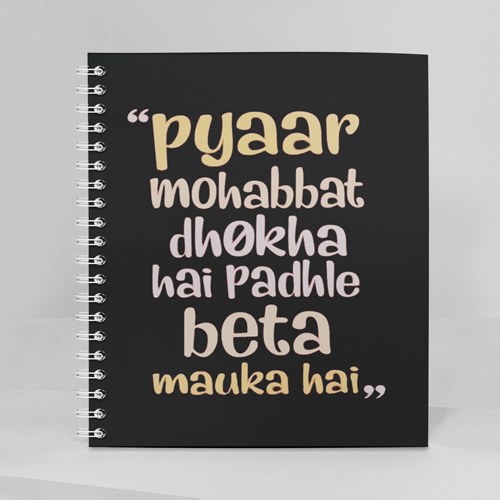 “pyaar
mohabbat
dhøkha
hai padhle
beta
mauka hai„